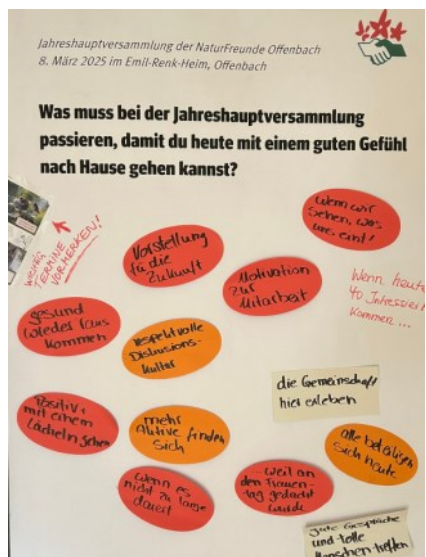 Jahreshauptversammlung der NaturFreunde Offenbach
8. März 2025 im Emil-Renk-Heim, Offenbach
Was muss bei der Jahreshauptversammlung
passieren, damit du heute mit einem guten Gefühl
nach Hause gehen kannst?
Wenn wir
sehen, was
uns eint!
WICHTIG
TERMINE
VORMERKEN!
Vorstellung
für die
Zukunft
Motivation
zur
Mitarbeit
Wenn heute
40 Interessier
kommen ...
gesund
wieder raus
kommen
respektvolle
Diskussions-
kultur
die Gemeinschaft
hier erleben
Positiv +
mit einem
Lächeln gehen
mehr
Aktive finden
sich
alle beteiligen
sich heute
wenn es
nicht zu lange
dauert
weil an
den Frauen-
tag gedacht
wurde
gute Gespräche
und tolle
Menschen treffen